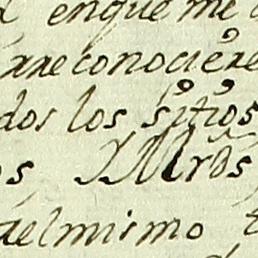 enque me
rreconociere
dos los sitios
os, Mrõs
del mismo